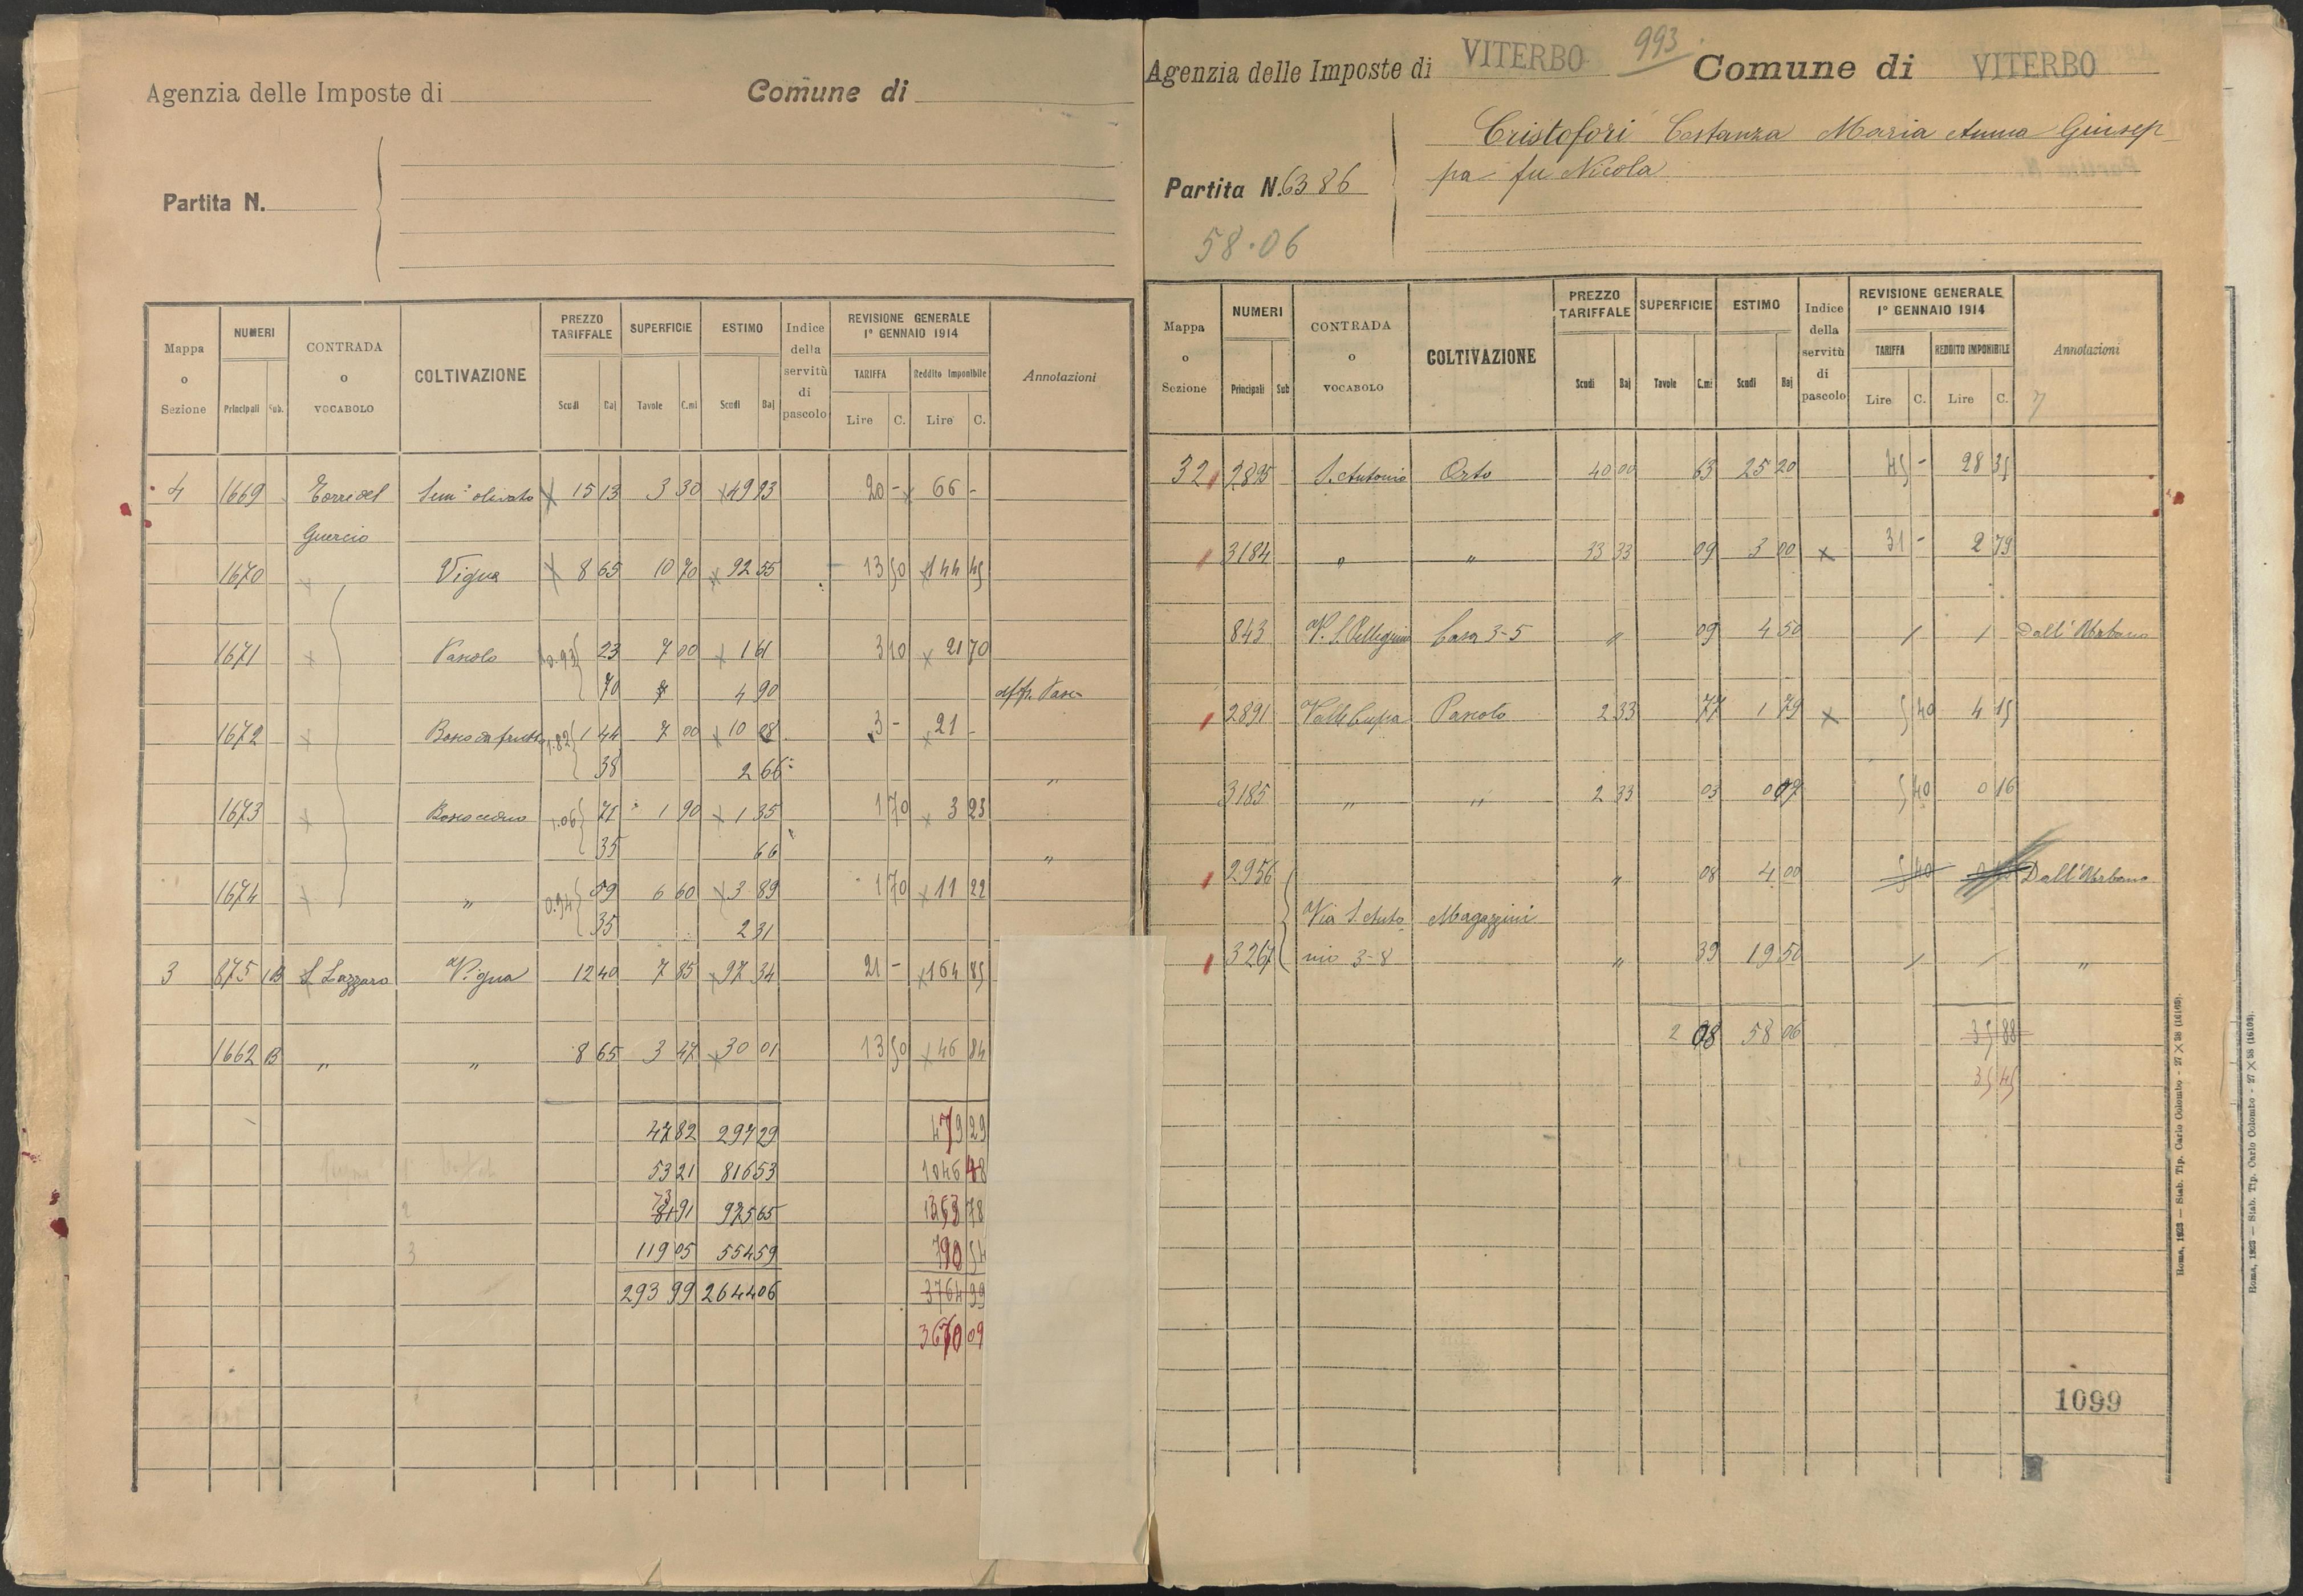 Agenzia delle Imposte di
Comune di
Partita N.
Mappa o Sezione
NUMERI
Principali
Sub.
CONTRADA o VOCABOLO
COLTIVAZIONE
PREZZO TARIFFALE
Scudi
Baj
SUPERFICIE
Tavole
C.mi
ESTIMO
Scudi
Baj
Indice della servitù di pascolo
REVISIONE GENERALE 1° GENNAIO 1914
TARIFFA
Lire
C.
Reddito Imponibile
Lire
C.
Annotazioni
4 1669 Torre del Sem° olivato 15 13 3 30 49 93 20 - 66 -
Guercio
1670 Vigna 8 65 10 70 92 55 13 50 144 45
1671 Pascolo 0.93 23 7 00 1 61 3 10 21 70
70 4 90 aff. Pasc
1672 Bosco da frutto 1.82 1 44 7 00 10 08 3 - 21 -
38 2 66 "
1673 Bosco ceduo 1.06 71 1 90 1 35 1 70 3 23
35 66 "
1674 " 0.94 59 6 60 3 89 1 70 11 22
35 2 31
3 875 1B S. Lazzaro Vigna 12 40 7 85 97 34 21 - 164 85
1662 B " " 8 65 3 47 30 01 13 50 46 84
47 82 297 29 479 29
53 21 816 53 1046 48
73 91 975 65 1353 78
3 119 05 554 59 790 54
293 99 2644 06 3764 99
3670 09
Agenzia delle Imposte di VITERBO 993 Comune di VITERBO
Cristofori Costanza Maria Anna Giusep
Partita N. 6386 pa fu Nicola
58.06
Mappa o Sezione
NUMERI
Principali
Sub
CONTRADA o VOCABOLO
COLTIVAZIONE
PREZZO TARIFFALE
Scudi
Baj
SUPERFICIE
Tavole
C.mi
ESTIMO
Scudi
Baj
Indice della servitù di pascolo
REVISIONE GENERALE 1° GENNAIO 1914
TARIFFA
Lire
C.
REDDITO IMPONIBILE
Lire
C.
Annotazioni
7
32 2895 S. Antonio Orto 40 00 63 25 20 45 - 28 35
3184 " " 33 33 09 3 00 x 31 - 2 79
843 V. S. Pellegrino Casa 3-5 " 09 4 50 / / Dall'Urbano
2891 Valle Cupa Pascolo 2 33 77 1 79 x 5 40 4 15
3185 " " 2 33 03 0 07 5 40 0 16
2956 " 08 4 00 5 40 Dall'Urbano
Via S. Anto Magazzini
3267 nio 3-8 " 39 19 50 / / "
2 08 58 06 35 88
35 45
1099
Roma, 1923 — Stab. Tip. Carlo Colombo - 27 × 38 (16103).
Roma, 1923 — Stab. Tip. Carlo Colombo - 27 × 38 (16103).